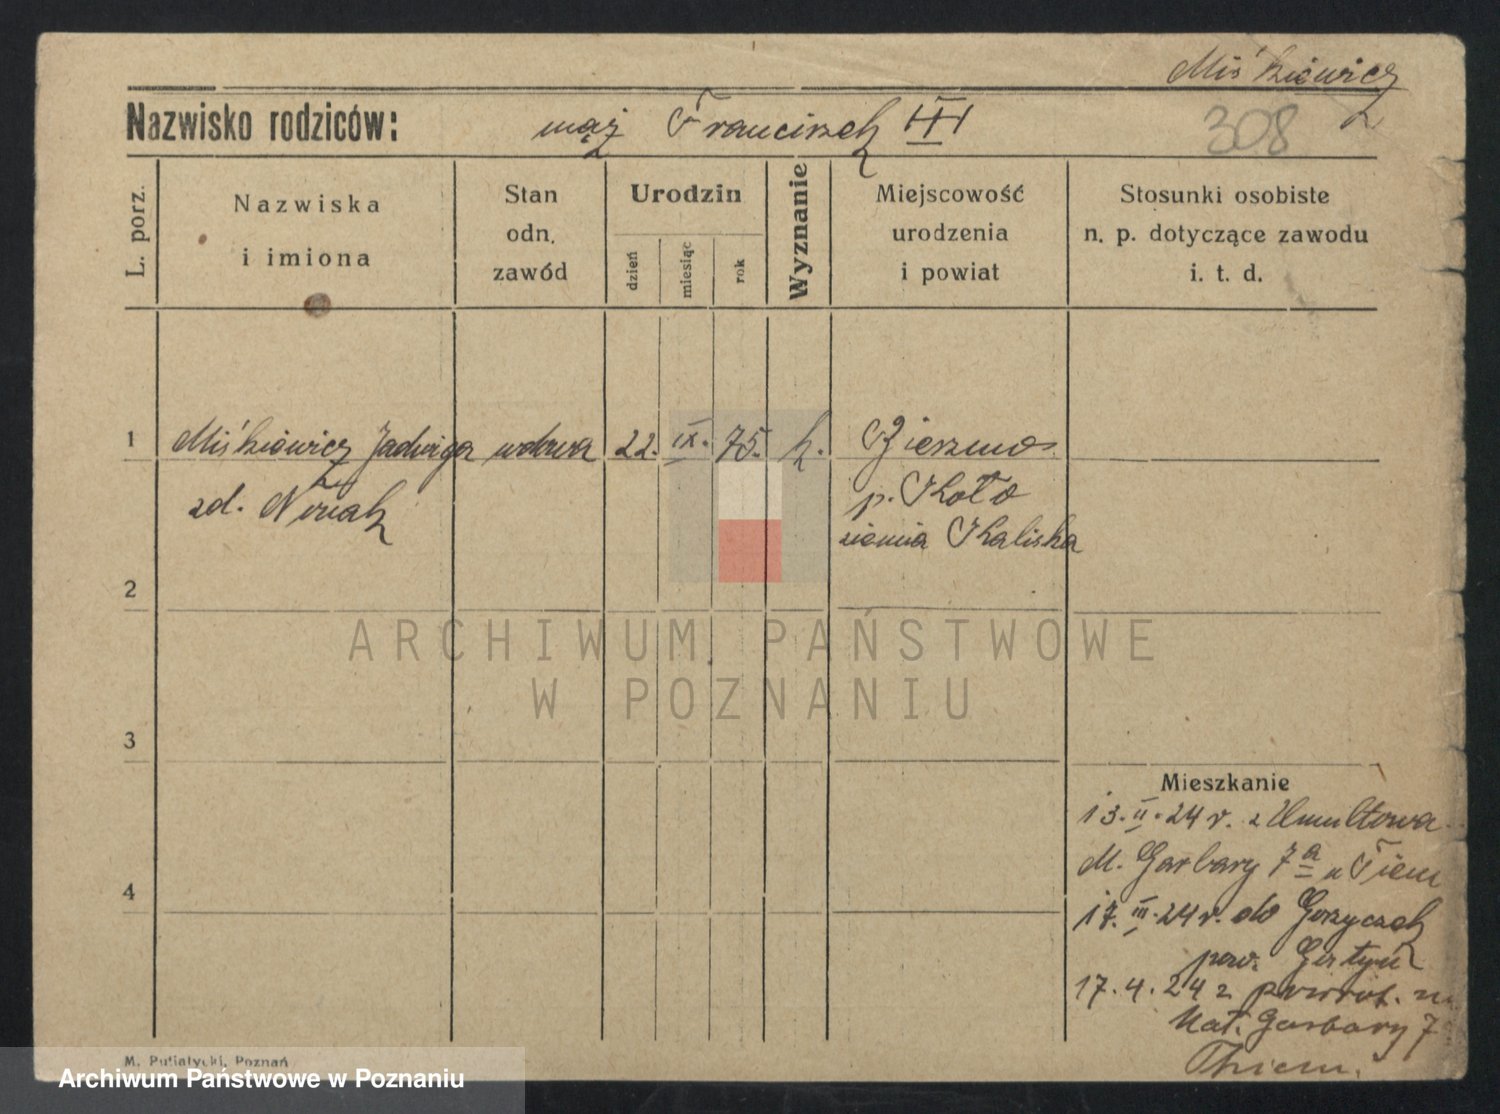 Miśkiewicz
Nazwisko rodziców: mąż Franciszek III
308
L. porz.
Nazwiska
i imiona
Stan
odn.
zawód
Urodzin
dzień
miesiąc
rok
Wyznanie
Miejscowość
urodzenia
i powiat
Stosunki osobiste
n. p. dotyczące zawodu
i. t. d.
1 Miśkiewicz Jadwiga wdowa 22. IX. 75. k.
zd. Nowak p. Koło
ziemia Kaliska
2
ARCHIWUM PAŃSTWOWE
W POZNANIU
3
Mieszkanie
13. II. 24 r. z Umultowa
M. Garbary 7a u Tiem
4
17. III. 24 r. do Gorzyczek
pow.
17. 4. 24 z powrot. na
Mał. Garbary 7
Thiem.
M. Putiatycki, Poznań
Archiwum Państwowe w Poznaniu